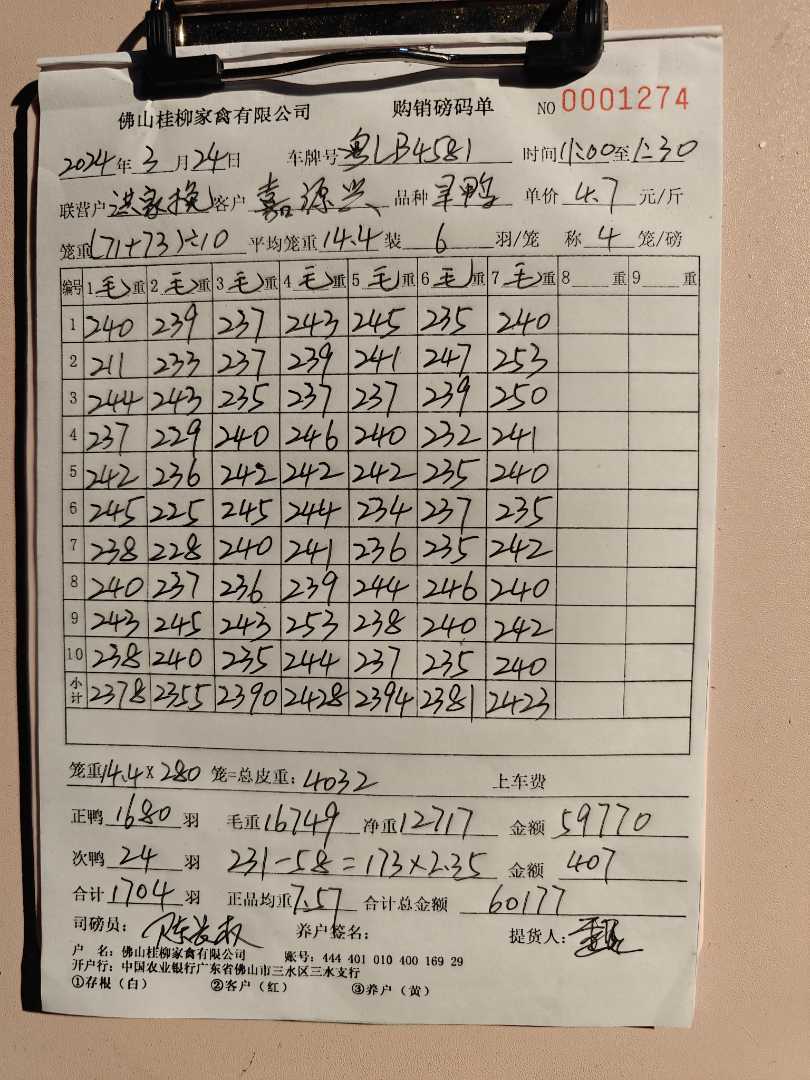 佛山桂柳家禽有限公司 购销磅码单 NO 0001274
2024年3月24日 车牌号 粤LB4581 时间 11:00至1:30
联营户 洪家换 客户 嘉源兴 品种 旱鸭 单价 4.7 元/斤
笼重(71+73)÷10 平均笼重14.4装 6 羽/笼 称 4 笼/磅
编号 1毛重 2毛重 3毛重 4毛重 5毛重 6毛重 7毛重 8 重 9 重
1 240 239 237 243 245 235 240
2 211 233 237 239 241 247 253
3 244 243 235 237 237 239 250
4 237 229 240 246 240 232 241
5 242 236 242 242 242 235 240
6 245 225 245 244 234 237 235
7 238 228 240 241 236 235 242
8 240 237 236 239 244 246 240
9 243 245 243 253 238 240 242
10 238 240 235 244 237 235 240
小计 2378 2355 2390 2428 2394 2381 2423
笼重14.4×280笼=总皮重:4032 上车费
正鸭1680羽 毛重16749 净重12717 金额59770
次鸭24羽 231-58=173×2.35 金额407
合计1704羽 正品均重7.57 合计总金额60177
司磅员: 养户签名: 提货人:
户 名:佛山桂柳家禽有限公司 账号:444 401 010 400 169 29
开户行:中国农业银行广东省佛山市三水区三水支行
①存根(白) ②客户(红) ③养户(黄)